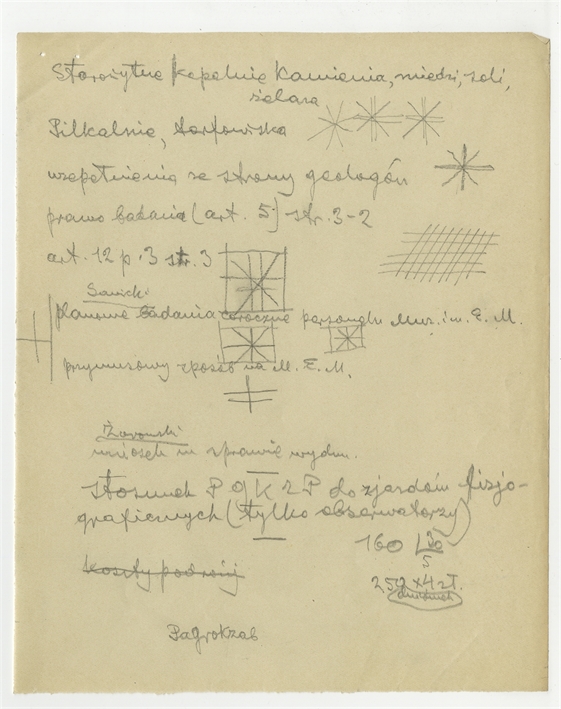 Starożytne kopalnie kamienia, miedzi, soli,
żelaza
Pilkalnie, torfowiska
uzupełnienia ze strony geologów
prawo badania (art. 5) str. 3-2
art. 12 p. 3 str. 3
Sawicki
planowe badania coroczne personelu Muz. i m. E. M.
przymusowy na M. E. M.
Żurowski
wniosek w sprawie wydm.
stosunek P G K Z P do zjazdów fizjo-
graficznych (tylko obserwatorzy)
160 30
5
25 x 4 zł.
koszty podróży